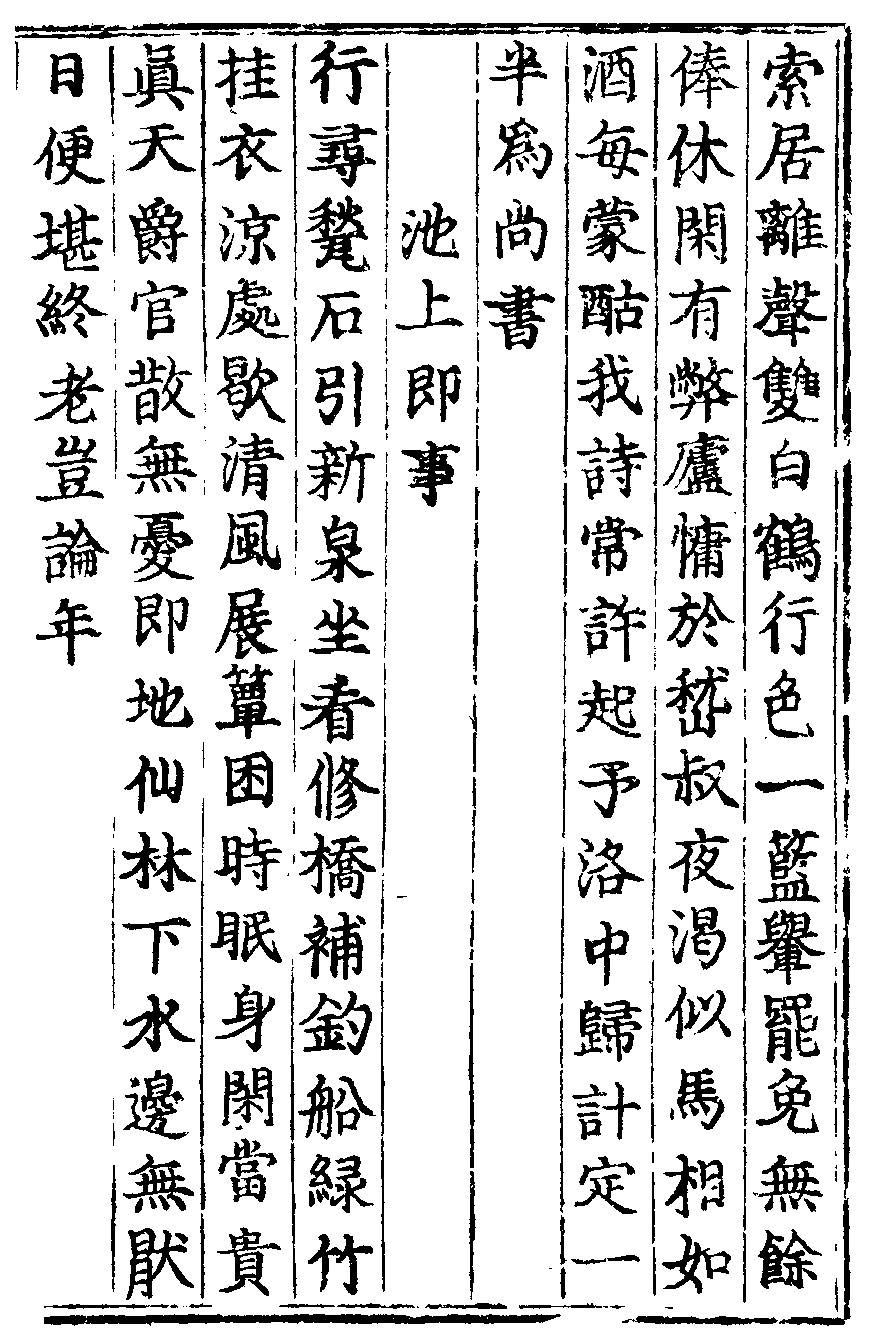 索居離聲雙白鶴行色一籃轝罷免無餘
俸休閑有弊廬慵於嵇叔夜渴似馬相如
酒每蒙酤我詩常許起予洛中歸計定一
半為尚書
池上即事
行尋甃石引新泉坐看修橋補釣船綠竹
挂衣涼處歇清風展簟困時眠身閑當貴
眞天爵官散無憂即地仙林下水邊無猒
日便堪終老豈論年